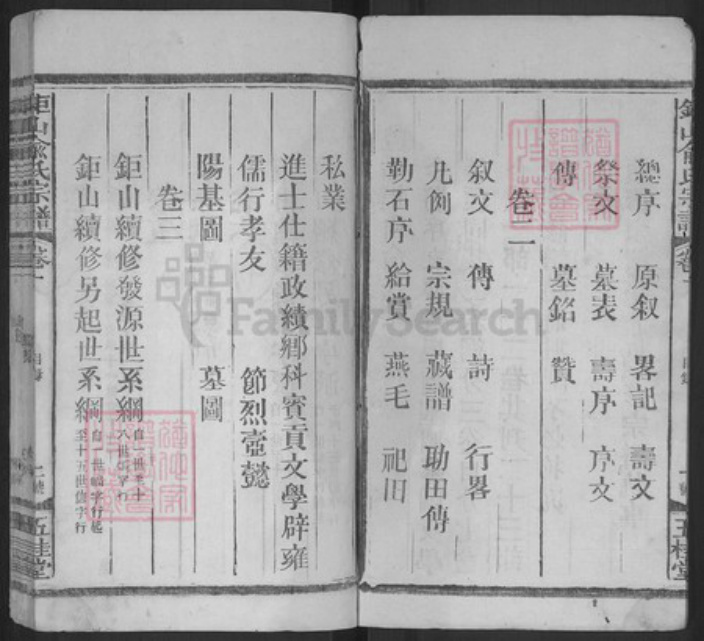 總序 原叙 畧記 壽文
祭文 墓表 壽序 序文
傳 墓銘 贊
卷二
叙文 傳 詩 行畧
凡例 宗規 藏譜 助田傳
勒石序 給賞 燕毛 祀田
私業
進士仕籍政績鄉科賓貢文學辟雍
儒行孝友 節烈壼懿
陽基圖 墓圖
卷三
鉅山續修發源世系綱
自一世至十
鉅山續修另起世系綱
至十五世
五桂堂
鉅山俞氏宗譜 卷一
五桂堂
FamilySearch